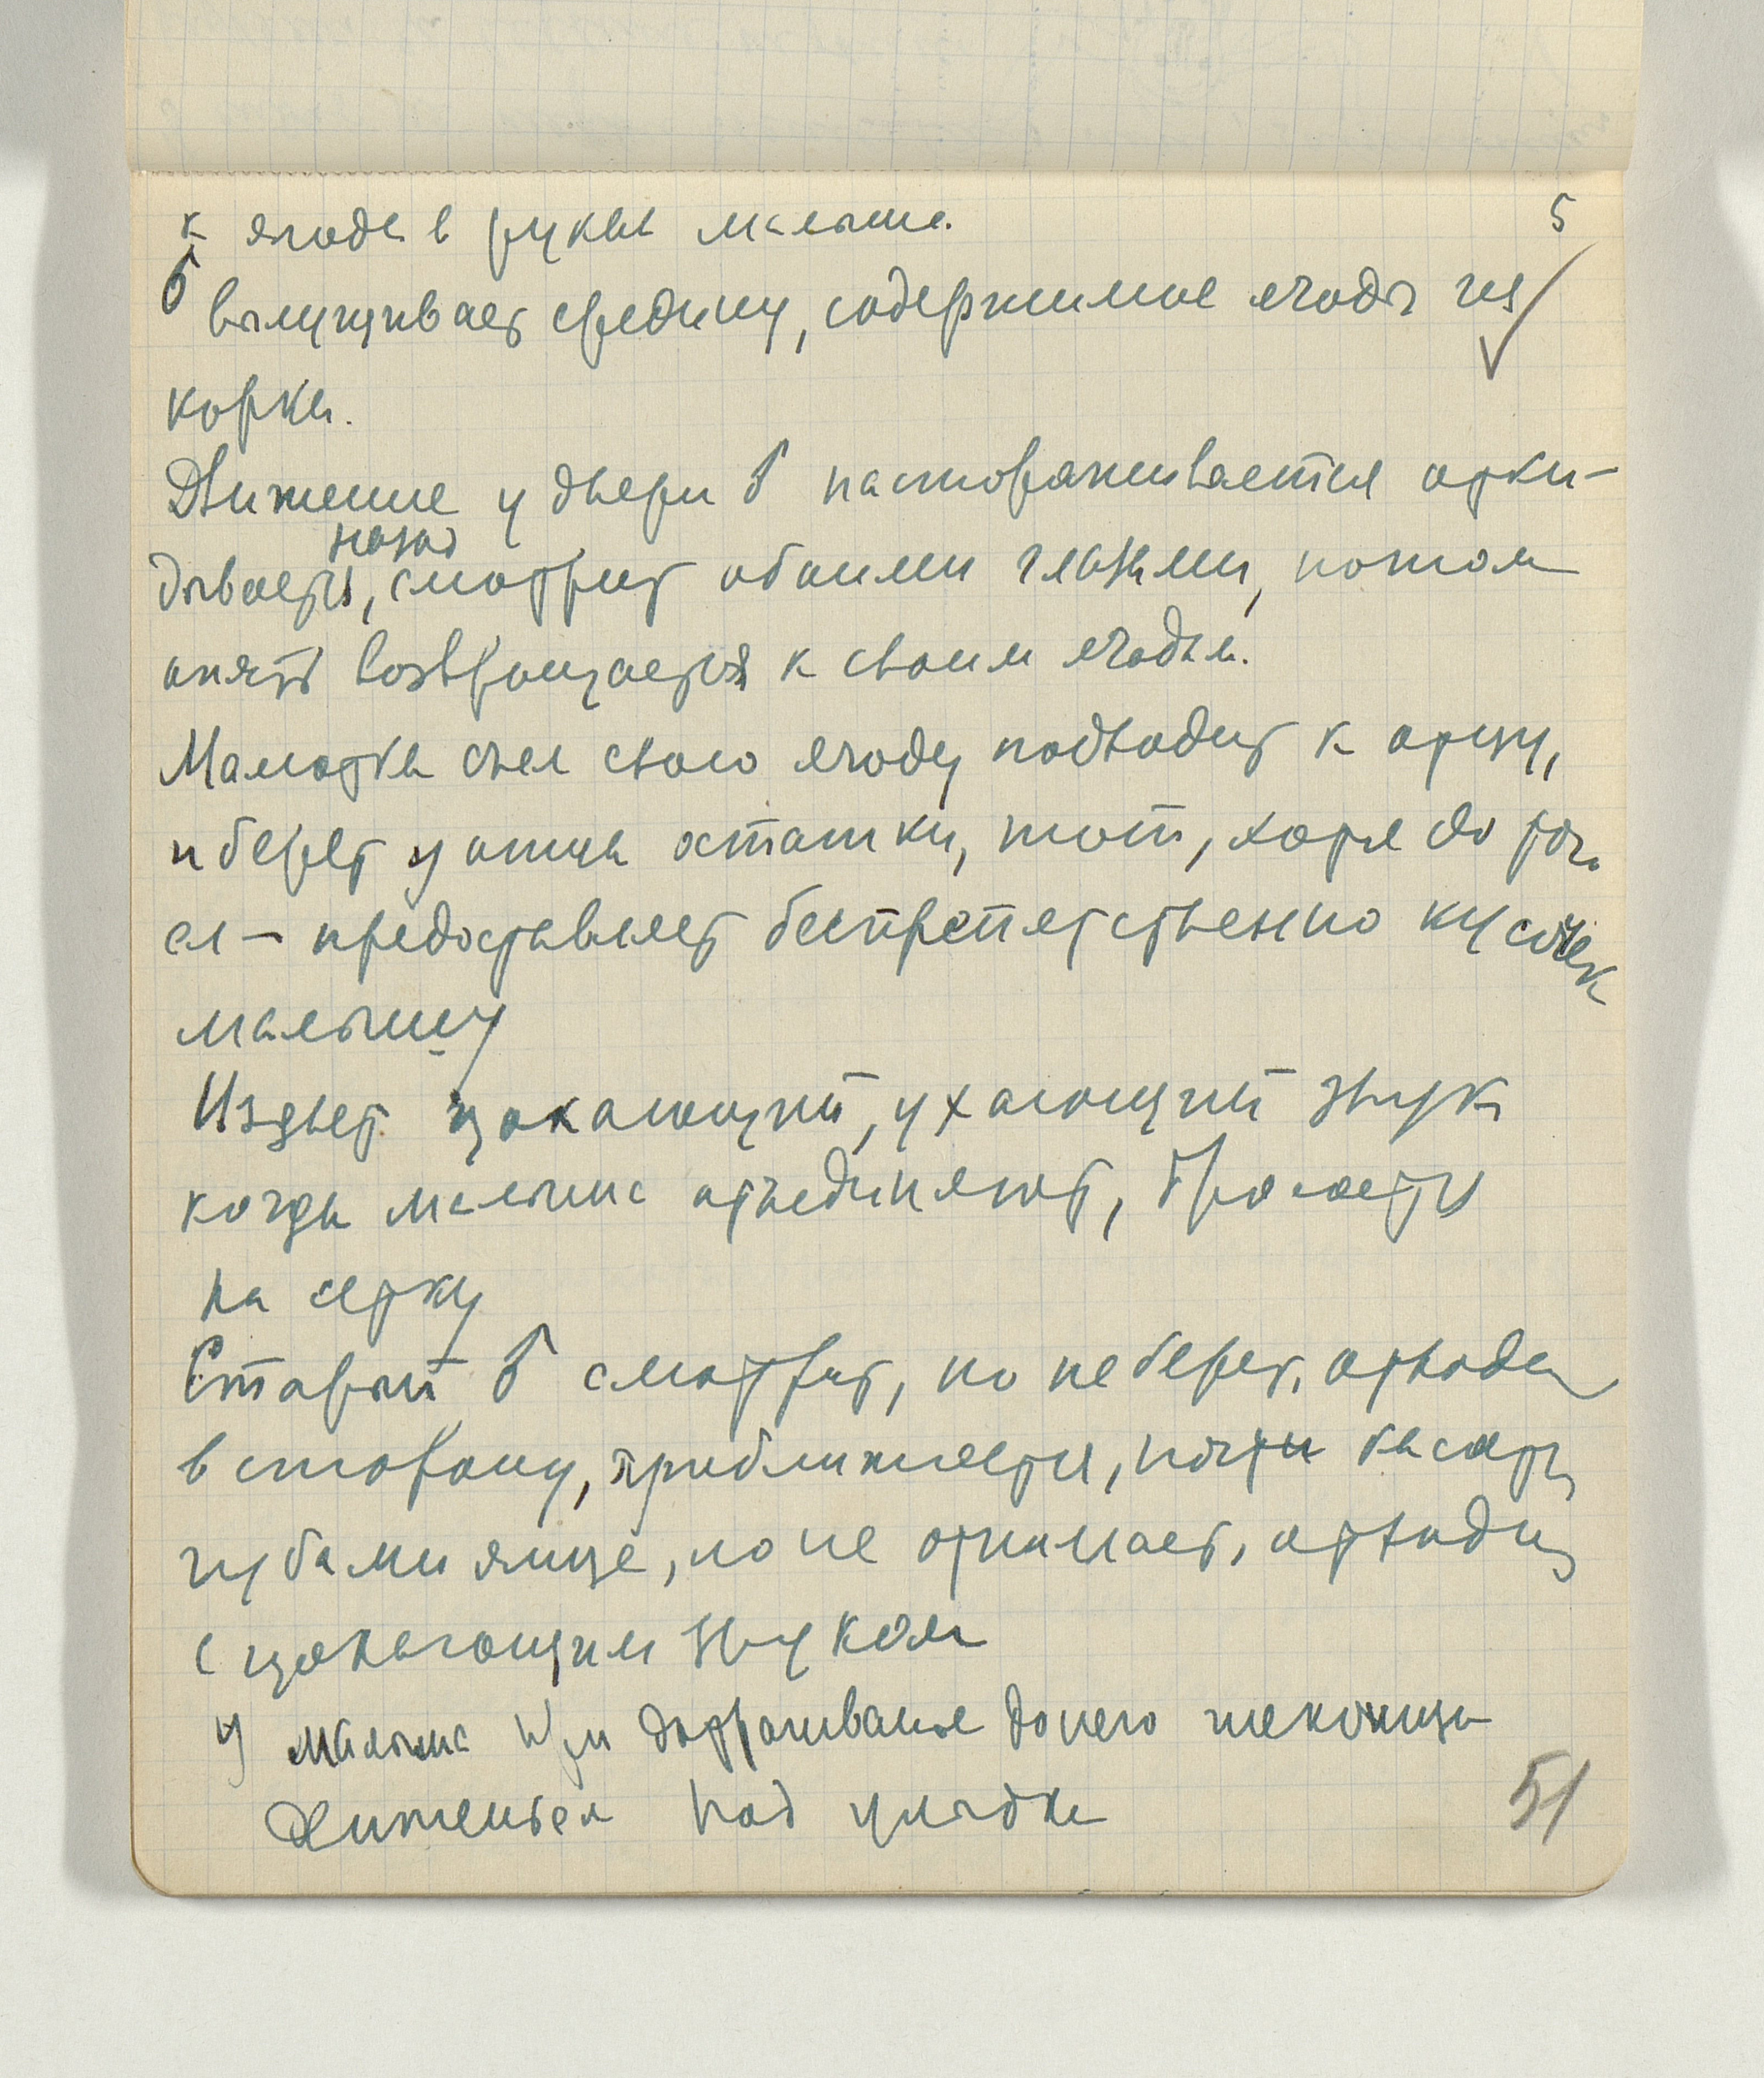 5
к ягоде в руках малыша.
♂ вылущивает средину, содержимое ягоды из
корки.
Движение у двери ♂ настораживается отки-
назад
дывается, смотрит обоими глазами, потом
опять возвращается к своим ягодам.
Малютка съел свою ягоду подходит к отцу,
и берет у отца остатки, тот, хотя до
ел – предоставляет беспрепятственно кусочек
малышу
Издает цокающий, ухающий звук
когда малыша отъединяют, бросается
на сетку
Старый ♂ смотрит, но не берет, отходит
в сторону, приближается, почти касается
губами яйце, но не отнимает, отходит
с цокающим звуком
У малыша при дотрагиваньи до него
движенья под
51